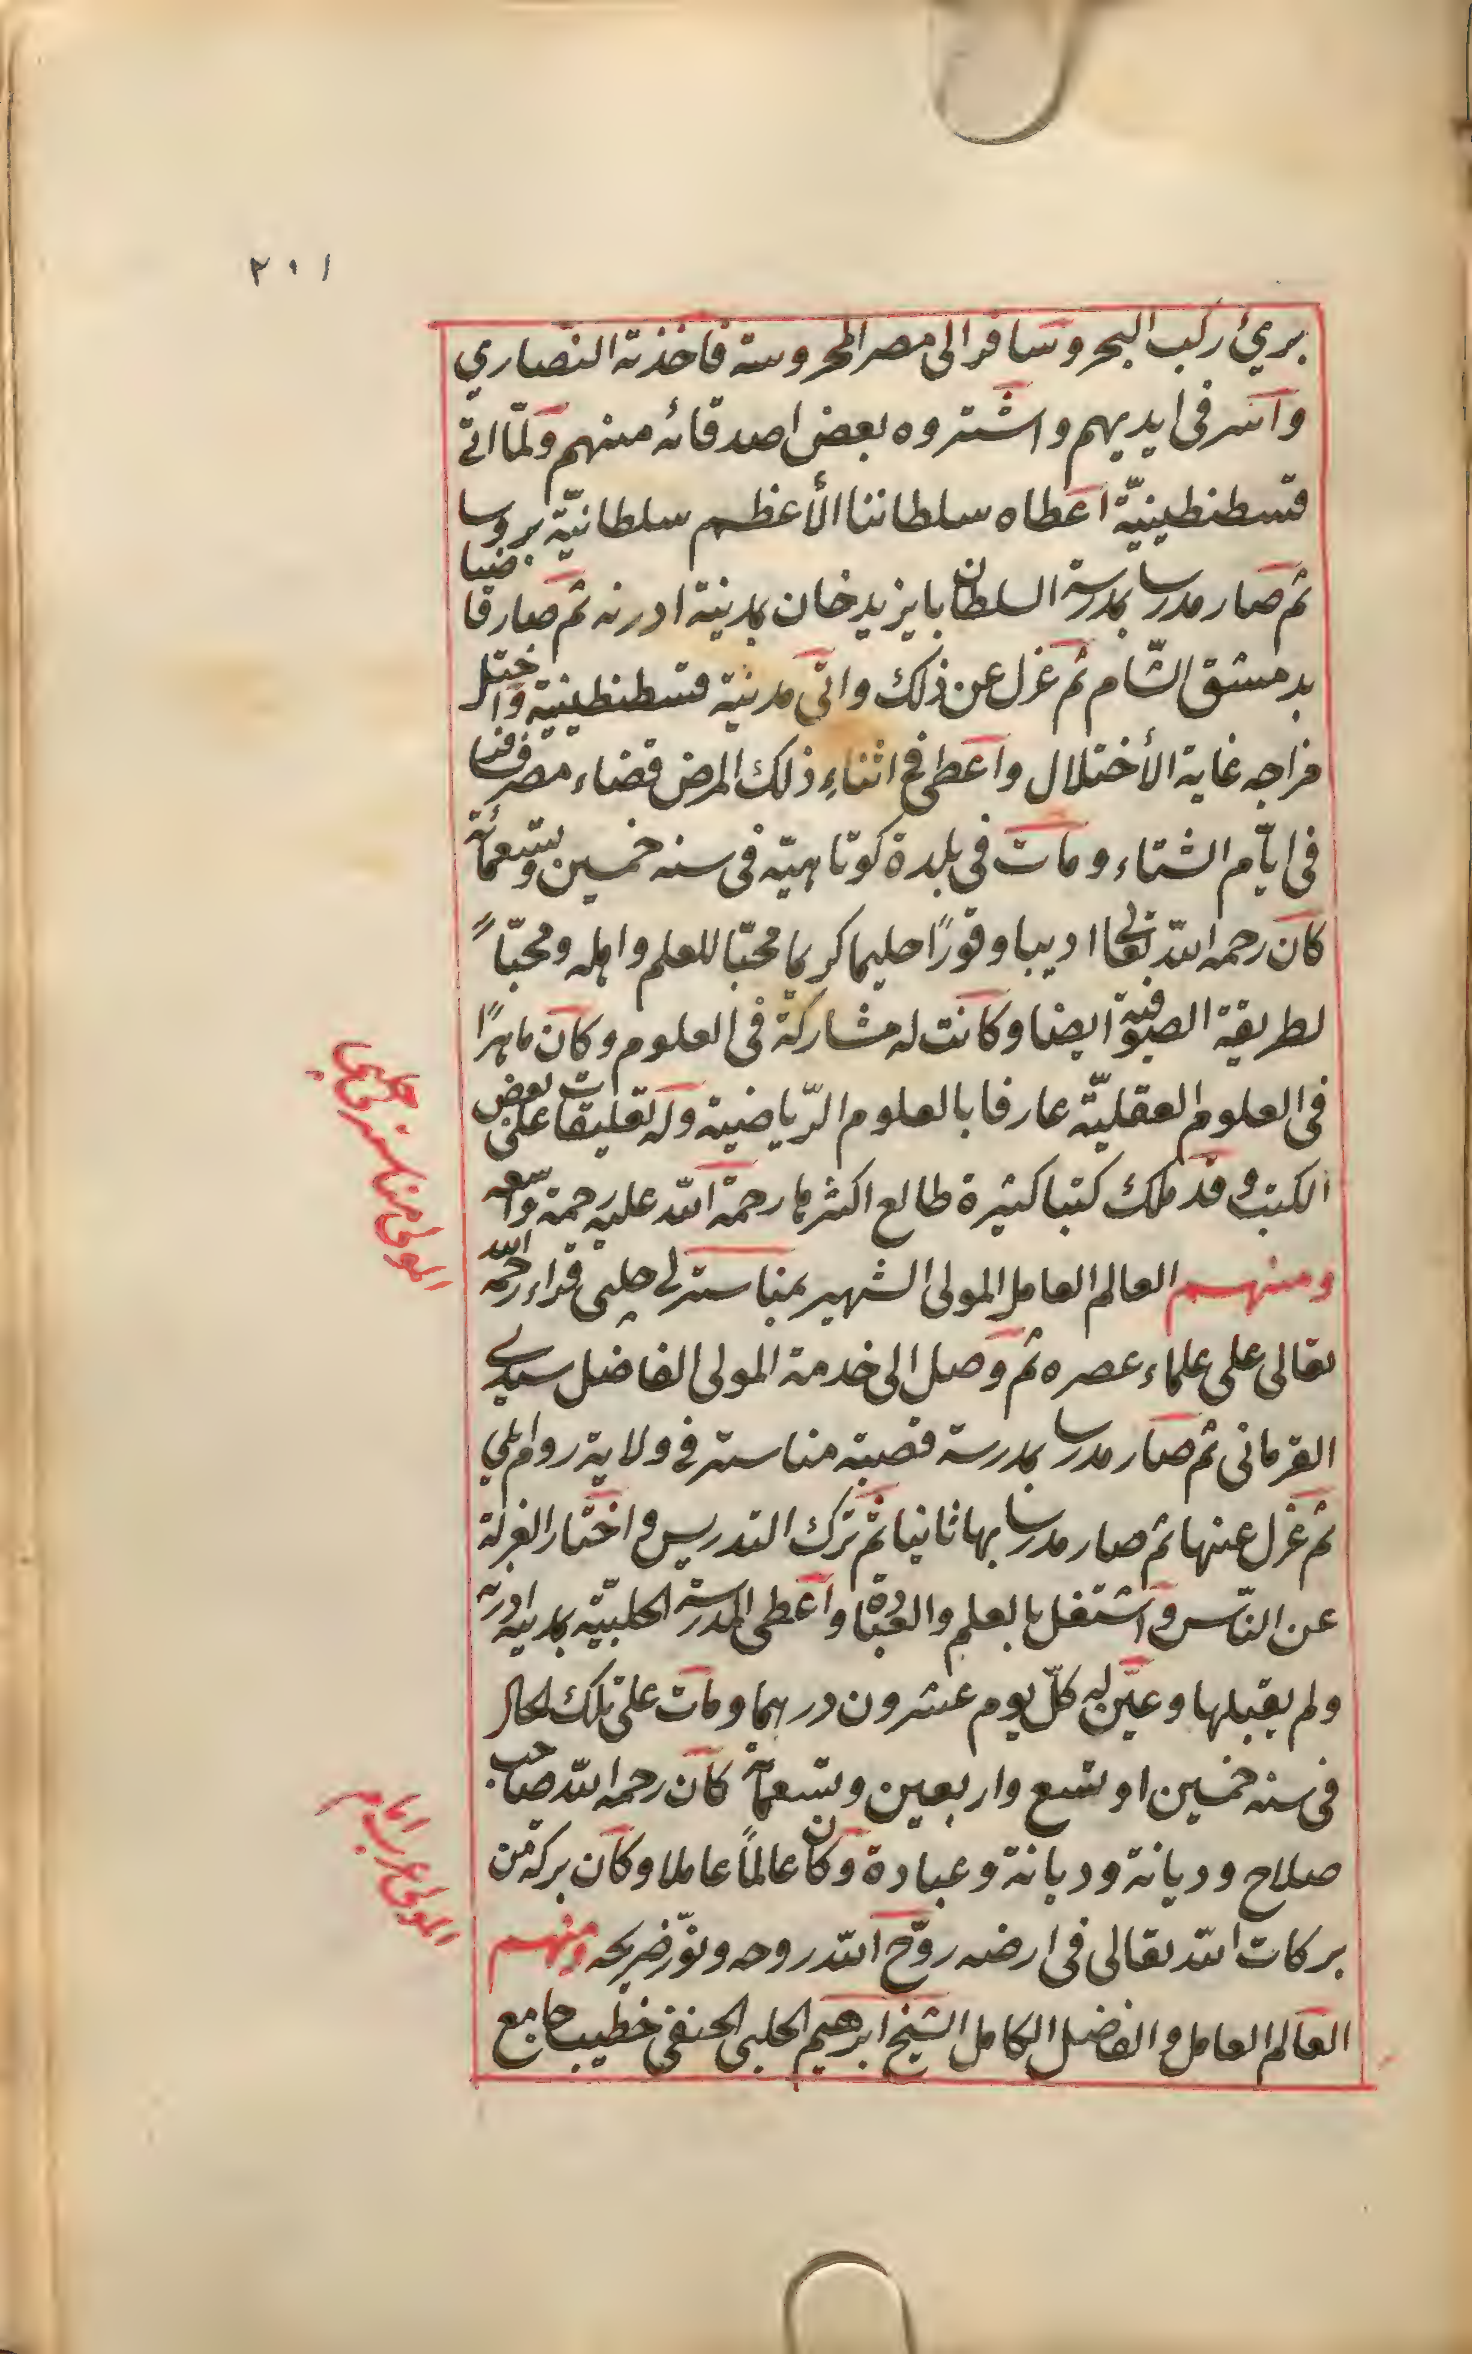 ٢٠١
برئ ركب البحر وسافر الى مصر المحروسة فاخذته النصاري
واسر فى ايديهم واشتروه بعض اصدقائه منهم ولمّا اتى
قسطنطينيّة اعطاه سلطاننا الأعظم سلطانيّة بروسا
ثم صار مدرسا بمدرسة السلطان بايزيد خان بمدينة ادرنه ثم صار قاضيا
بدمشق الشّام ثم عزل عن ذلك واتى مدينة قسطنطينية واختل
مزاجه غاية الأختلال واعطى فى اثناءِ ذلك المرض قضاء مصر فسافر
فى ايّام الشتاء ومات فى بلدة كوتاهيّه فى سنه خمسين وتسعمائة
كان رحمه اللّه تعالى اديبا وقورًا حليما كريما محبّا للعلم واهله ومحبّاً
لطريقة الصوفية ايضا وكانت له مشاركة فى العلوم وكان ماهرًا
فى العلوم العقليّة عارفا بالعلوم الرّياضية وله تعليقات على بعض
الكتب وقد ملك كتبا كثيرة طالع اكثرها رحمة اللّه عليه رحمة واسعه
ومنهم العالم العامل المولى الشهير بمناسترلى چلبى قراء رحمه اللّه
تعالى على علماء عصره ثم وصل الى خدمة المولى الفاضل سيدى
القرمانى ثم صار مدرسا بمدرسة قصبة مناستر فى ولاية روم ايلي
ثم عزل عنها ثم صار مدرسا بها ثانيا ثم ترك التدريس واختار العزلة
عن النّاس واشتغل بالعلم والعبادة واعطى المدرسة الحلبيّه بمدينه ادرنه
ولم يقبلها وعيّن له كلّ يوم عشرون درهما ومات على تلك الحال
فى سنه خمسين او تسع واربعين وتسعمائة كان رحمه اللّه صاحب
صلاح وديانة وديانة وعبادة وكان عالماً عاملا وكان بركة من
بركات اللّه تعالى فى ارضه روّح اللّه روحه ونوّر ضريحه ومنهم
العالم العامل والفاضل الكامل الشيخ ابرهيم الحلبى الحنفى خطيب جامع
المولى مناسترلى چلبى
المولى عرب امام